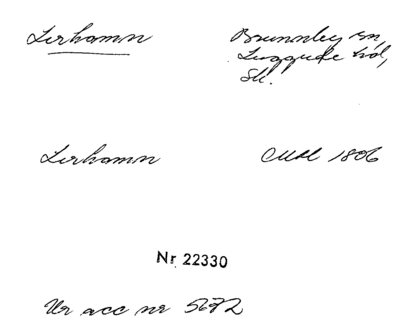 Lerhamn
Brunnby sn,
Luggude hd,
Sk.
Lerhamn
CMM 1806
Nr 22330
Ur acc nr 5672